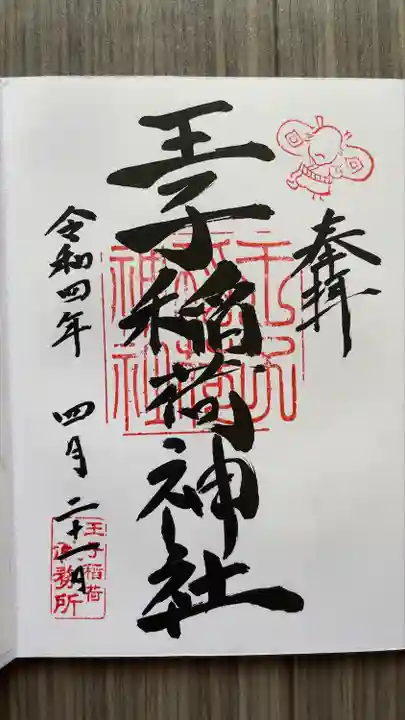 奉拝
王子稲荷神社
令和四年 四月二十一日
王子稲荷神社
王子稲荷
社務所